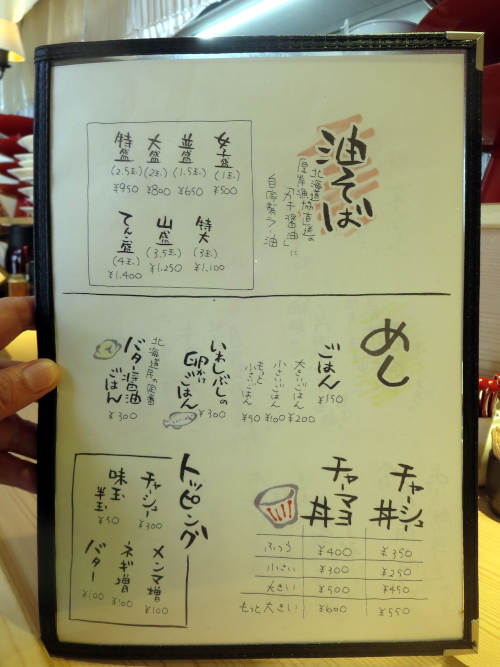 油そば
北海道
厚岸漁協直送の
「カキ醤油」に
自家製ラー油
女子盛
(1玉)
¥500
並盛
(1.5玉)
¥650
大盛
(2玉)
¥800
特盛
(2.5玉)
¥950
特大
(3玉)
¥1,100
山盛
(3.5玉)
¥1,250
てん盛
(4玉)
¥1,400
めし
ごはん
¥150
大きいごはん
¥200
小さいごはん
¥100
もっと
小さいごはん
¥50
いわしぶしの
卵かけ
ごはん
¥300
北海道民の定番
バター醤油
ごはん
¥300
チャーシュー丼
チャーマヨ丼
ふつう ¥400 ¥350
小さい ¥300 ¥250
大きい ¥500 ¥450
もっと大きい ¥600 ¥550
トッピング
チャーシュー
¥300
味玉
半玉
¥50
メンマ増
¥100
ネギ増
¥100
バター
¥100